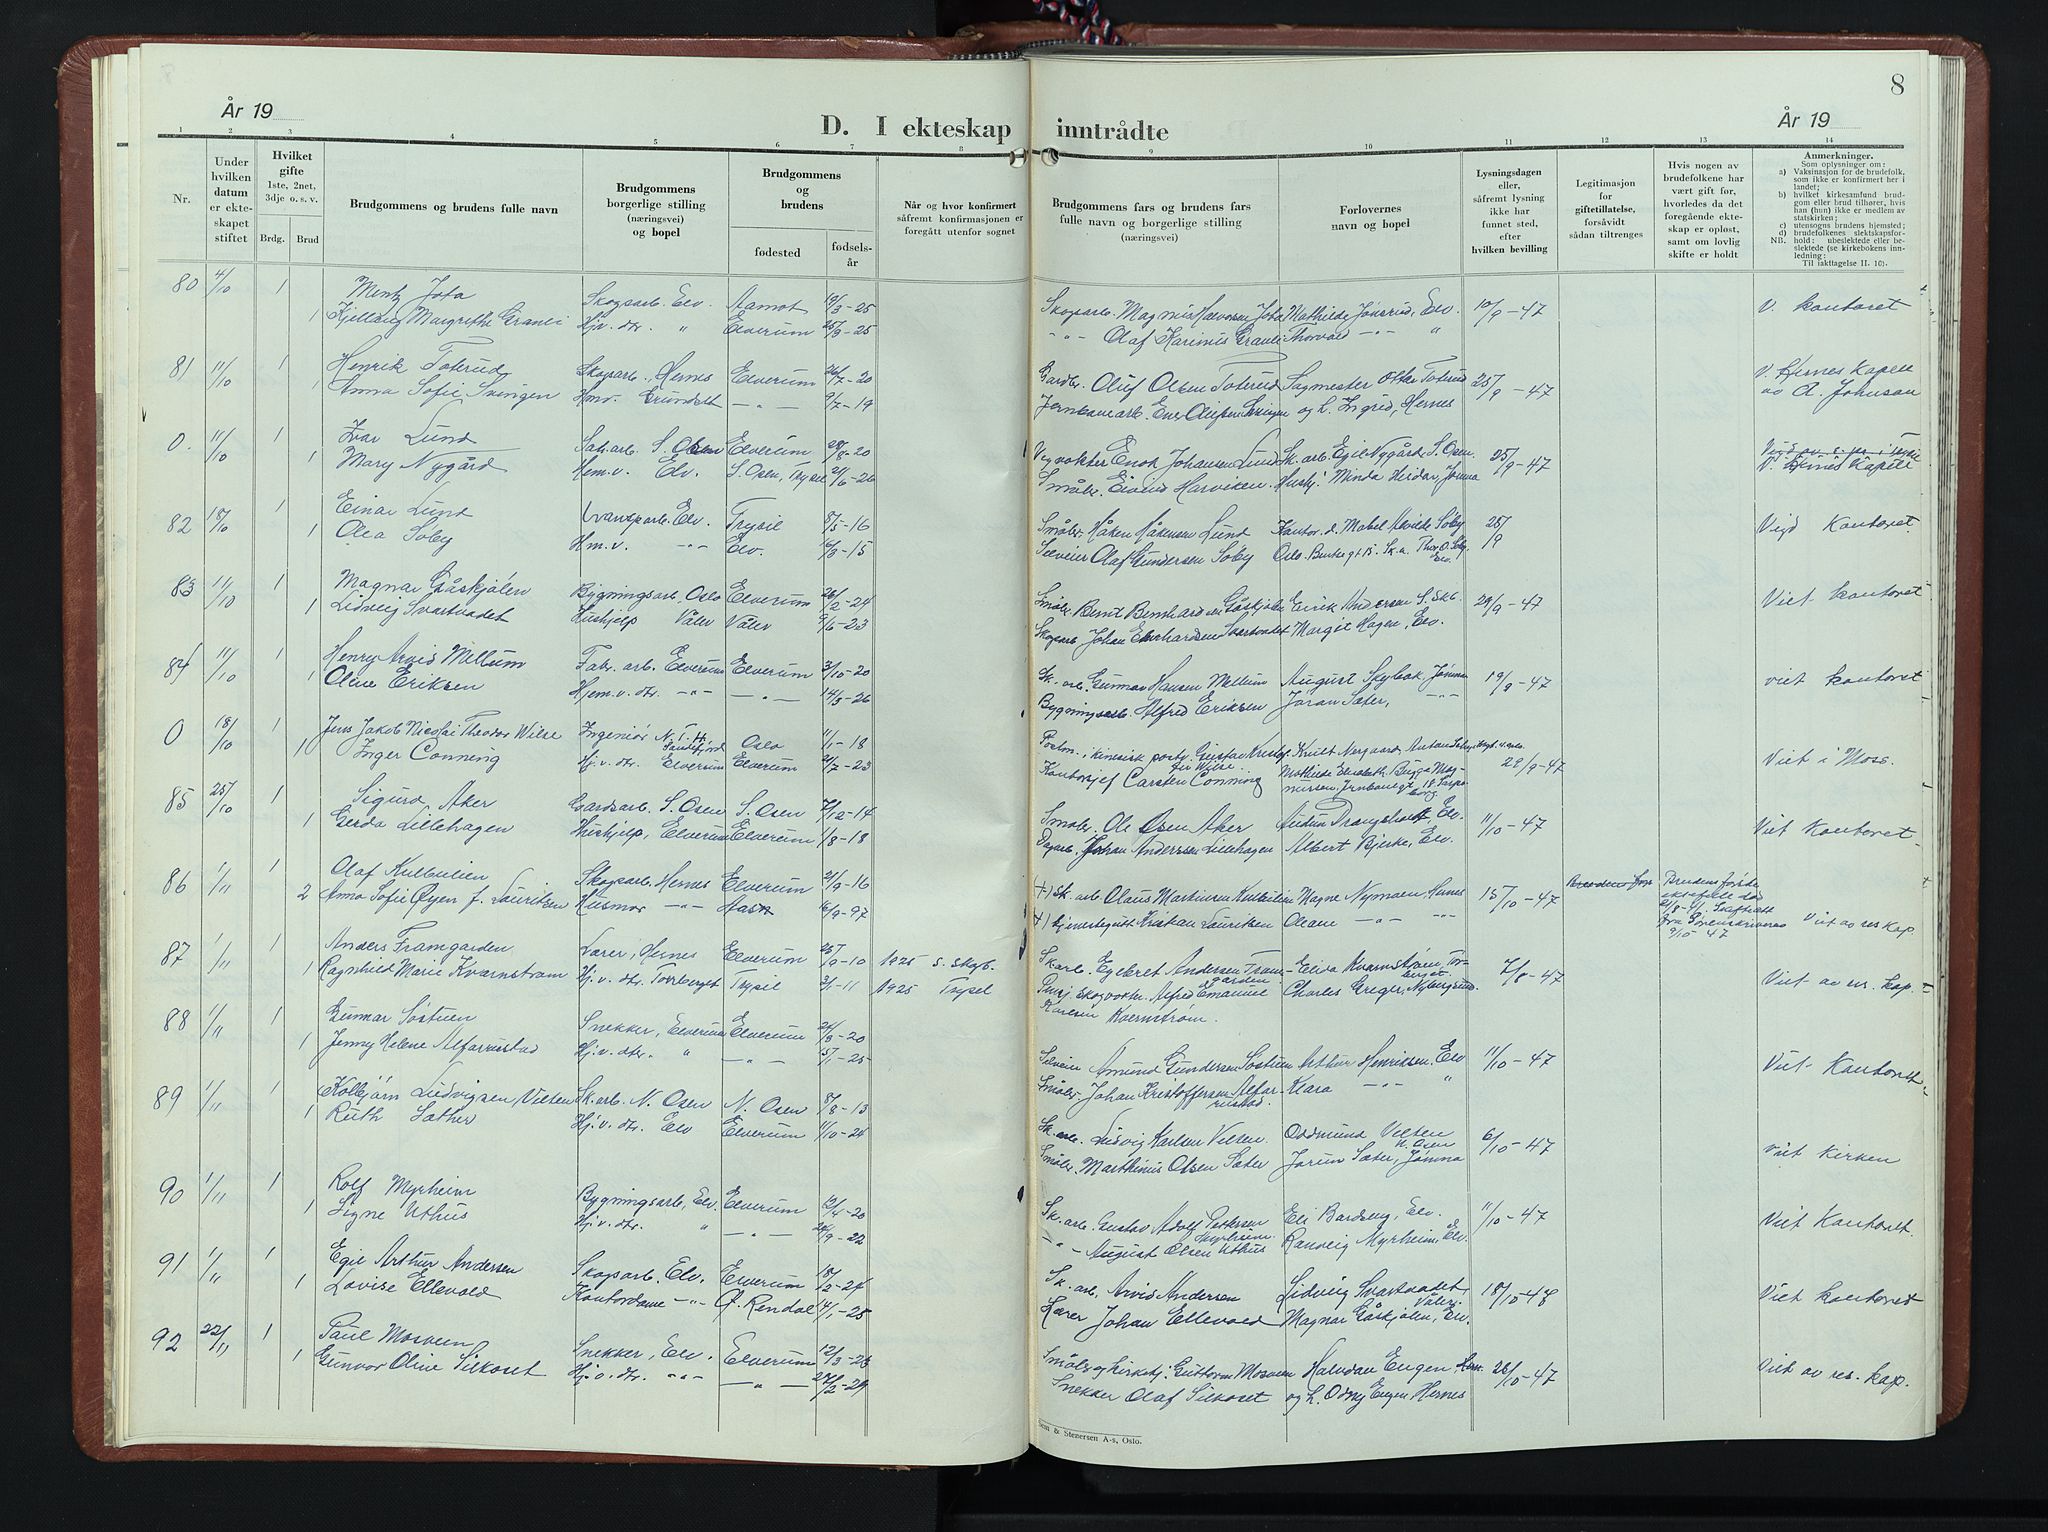 8
År 19
D. I ekteskap inntrådte
År 19
1 2 3 4 5 6 7 8 9 10 11 12 13 14
Nr.
Under hvilken datum er ekteskapet stiftet
Hvilket gifte 1ste, 2net, 3dje o. s. v.
Brdg. Brud
Brudgommens og brudens fulle navn
Brudgommens borgerlige stilling (næringsvei) og bopel
Brudgommens og brudens
fødested
fødsels-år
Når og hvor konfirmert såfremt konfirmasjonen er foregått utenfor sognet
Brudgommens fars og brudens fars fulle navn og borgerlige stilling (næringsvei)
Forlovernes navn og bopel
Lysningsdagen eller, såfremt lysning ikke har funnet sted, efter hvilken bevilling
Legitimasjon for giftetillatelse, forsåvidt sådan tiltrenges
Hvis nogen av brudefolkene har vært gift før, hvorledes da det foregående ekteskap er opløst, samt om lovlig skifte er holdt
Anmerkninger.
Som oplysninger om:
a) Vaksinasjon for de brudefolk, som ikke er konfirmert her i landet;
b) hvilket kirkesamfund brudgom eller brud tilhører, hvis han (hun) ikke er medlem av statskirken;
c) utensogns brudens hjemsted;
d) brudefolkenes slektskapsforhold:
NB. ubeslektede eller beslektede (se kirkebokens innledning:
Til iakttagelse II. 10).
80 4/10 1 Mentz Jota Skogsarb. Elv. Aamot 19/3-25 Skogsarb. Magnus Halvorsen Jota Mathilde Jønsrud, Elv. 10/9-47 V. kontoret
1 Kjellaug Margrethe Granli Hjv. dtr. " Elverum 25/9-25 -"- Olaf Karinius Granli Thorvald -"- "
81 11/10 1 Henrik Toterud Skogsarb., Hernes Elverum 26/7-20 Gardbr. Oluf Olsen Toterud Sagmester Otto Toterud 25/9-47 V. Hernes Kapell
1 Anna Sofie Svingen Hmv. Grundset -"- 9/7-19 Jernbanearb. Ener Olufsen Svingen og h. Ingrid, Hernes av A. Johnsen
0. 11/10 1 Ivar Lund Sag.arb. S. Osen Elverum 28/8-20 Vegvokter Enok Johansen Lund Sk. arb. Egil Nygård S. Osen 25/9-47
1 Mary Nygård Hem.v. Elv. S. Osen, Trysil 21/6-26 Småbr. Eivind Harviken. Hushj. Minda Herdar, Jømna V. Hernes Kapell
82 18/10 1 Einar Lund Transp.arb. Elv. Trysil 8/5-16 Småbr. Håken Håkensen Lund Kontor.d. Mabel Alvilde Søby 25/9 Vigd Kontoret
1 Olea Søby Hm.v. -"- Elv. 6/3-15 Selveier Olaf Gundersen Søby Oslo. Sk.a. Thor O. Søby, Elv.
83 11/10 1 Magnar Gåskjølen Bygningsarb. Oslo Elverum 26/2-24 Småbr. Bernt Bernhardsen Gåskjølen Eirik Andersen S. Skb. 29/9-47 Viet kontoret
1 Lidveig Svartvadet Hushjelp Våler Våler 9/6-23 Skogsarb. Johan Eberhardsen Svartvadet Margit Hagen, Elv.
84 11/10 1 Henry Arvid Mellum Fabr. arb. Elverum Elverum 3/10-20 Sk. arb. Gunnar Hansen Mellum August Skybak, Jømna 19/9-47 viet kontoret
1 Oline Eriksen Hem.v. dtr. -"- -"- 14/3-26 Bygningsarb. Alfred Eriksen Jøran Sæter, -"-
0 18/10 1 Jens Jakob Nicolai Theodor Wilse Ingeniør N.T.H. Sandefjord Oslo 11/1-18 Postm. i kinesisk postv. Gustav Kristofer Wilse. Knut Nergaard, 29/9-47 Viet i Moss.
1 Inger Conning Hj.v. dtr. Elverum Elverum 21/7-23 Kontorsjef Carsten Conning Mathilde Elisabeth Bugge Magnussen, Jernbanegt 18 Sarpsborg.
85 25/10 1 Sigurd Aker Gardsarb. S. Osen S. Osen 7/12-14 Småbr. Ole Osen Aker Audun Drangsholt, Elv. 11/10-47 Viet Kontoret
1 Gerda Lillehagen Hushjelp, Elverum Elverum 1/8-18 Dagarb. Johan Anderssen Lillehagen Albert Bjerke, Elv.
86 1/11 1 Olaf Kulbulien Skogsarb. Hernes Elverum 21/9-16 +) Sk. arb Olaus Martinsen Kulbulien Magne Nymoen, Hernes 15/10-47 Brudens første ektefelle død
2 Anna Sofie Øyen f. Lauritsen Husmor -"- Hasn 6/9-97 +) tjenestegutt Kristian Lauritsen Oleane -"- -"- Skifteatt fra Sorenskriveren 9/10 47 Viet av res kap.
87 1/11 1 Anders Framgarden Lærer, Hernes Elverum 25/9-10 1925 S. Skgb. Sk.arb. Egebret Andersen Framgarden Elida Kvarnstrøm, Torberget. 7/8-47 Viet av res. kap.
1 Ragnhild Marie Kvarnstrøm Hj. v. dtr. Torberget Trysil 3/1-11 1925 Trysil skogvokter Alfred Emanuel Karlsen Kvernstrøm. Charles Greger, Nybergsund.
88 1/11 1 Gunnar Sostuen Snekker, Elverum Elverum 24/3-20 Selveier Amund Gundersen Sostuen Arthur Henriksen, Elv 11/10-47 Viet Kontoret
1 Jenny Helene Alfarrustad Hj.v. dtr. " -"- 5/1-25 Småbr. Johan Kristoffersen Alfarrustad. Klara -"- "
89 1/11 1 Kolbjørn Ludvigsen Velten Sk. arb. N. Osen N. Osen 8/8-13 Sk. arb. Ludvig Karlsen Velten. Oddmund Velten N. Osen 6/10-47 viet kirken
1 Ruth Sæther Hj.v. dtr. Elv Elverum 11/10-24 Småbr. Marthinus Olsen Sæter Jørun Sæter, Jømna
90 1/11 1 Rolf Myrheim Bygningsarb. Elv. Elverum 12/4-20 Sk. arb. Gustav Adolf Pettersen Myrheim. Eli Bardseng, Elv. 11/10-47 Viet Kontoret.
1 Signe Uthus Hj.v. dtr. " -"- 24/9-22 -"- August Olsen Uthus Randeig Myrheim, Elv.
91 1/11 1 Egil Arthur Andersen Skogsarb. Elv. Elverum 18/2-24 Sk. arb. Arvid Andersen Lidveig Svartvadet Våler. 18/10-48 Viet kontoret
1 Lovise Ellevold Kontordame -"- Ø. Rendal 14/1-25 Lærer Johan Ellevold Magnar Gåskjølen, Elv.
92 22/11 1 Paul Mosveen Snekker, Elv. Elverum 12/3-23 Småbr og kirketj. Guttorm Mosveen Halvdan Engen, Hern. 28/10-47 Viet av res. kap.
1 Gunvor Oline Silkoset Hj. v. dtr. -"- -"- 27/2-29 Snekker Olaf Silkoset og h. Odny Engen, Hernes
Sem & Stenersen A-s, Oslo.